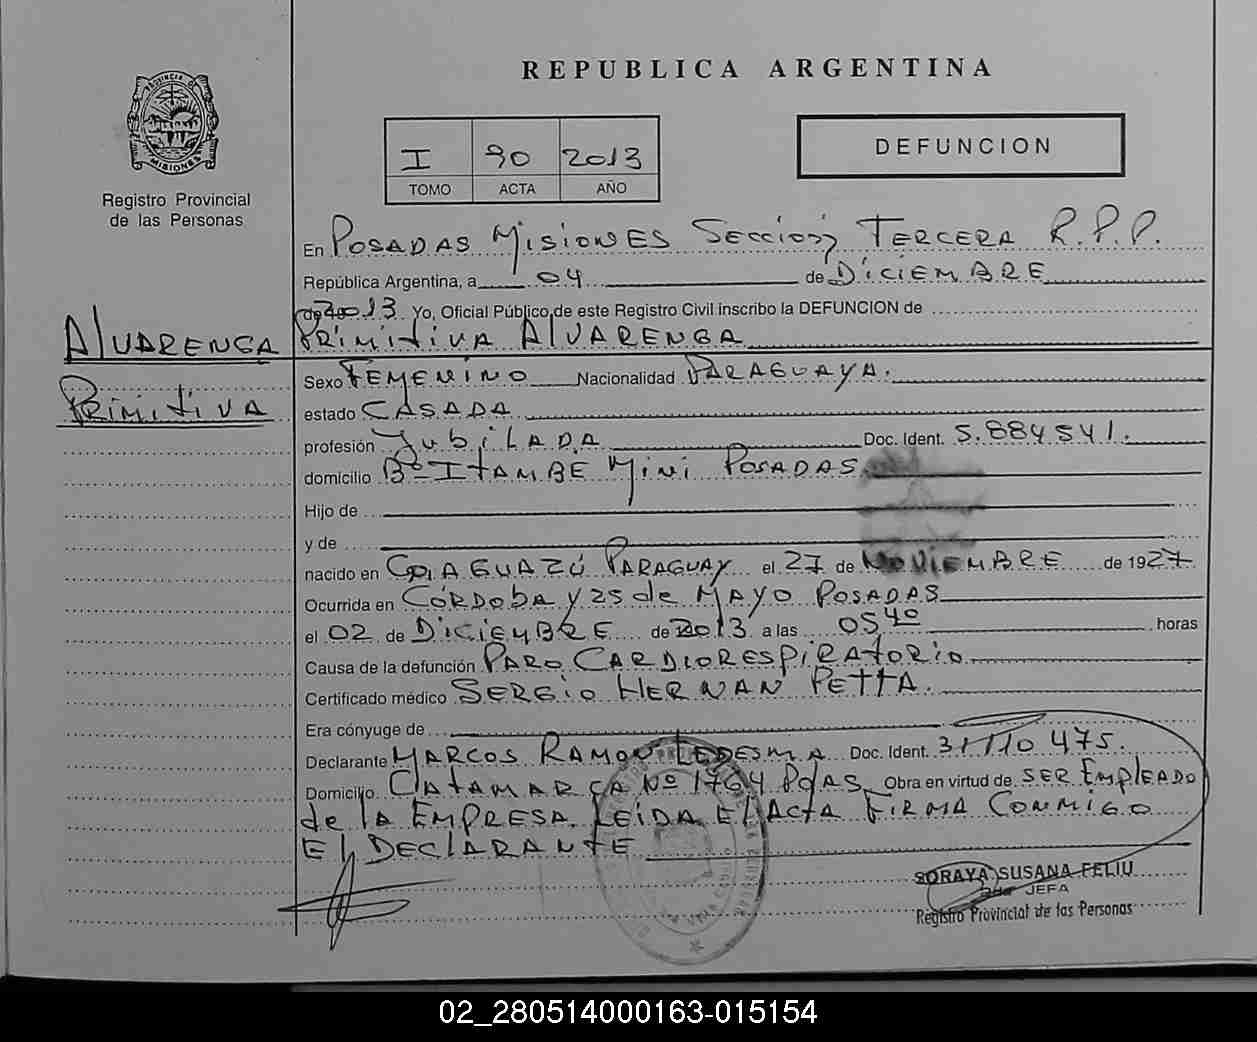 REPUBLICA ARGENTINA
PROVINCIA DE MISIONES
Registro Provincial
de las Personas
I 90 2013
TOMO ACTA AÑO
DEFUNCION
En POSADAS MISIONES SECCION TERCERA R.P.P.
República Argentina, a 04 de DICIEMBRE
de 2013 Yo, Oficial Público de este Registro Civil inscribo la DEFUNCION de
ALVARENGA PRIMITIVA ALVARENGA
Sexo FEMENINO Nacionalidad PARAGUAYA.
PRIMITIVA estado CASADA
profesión JubiLADA Doc. Ident. 5.884541.
domicilio Bº ITAMBÉ Mini POSADAS
Hijo de
y de
nacido en CAAGUAZÚ PARAGUAY el 27 de NOVIEMBRE de 1927
Ocurrida en CÓRDOBA Y 25 de MAYO POSADAS
el 02 de DICIEMBRE de 2013 a las 05 40 horas
Causa de la defunción PARO CARDIORESPIRATORIO
Certificado médico SERGIO HERNAN PETTA.
Era cónyuge de
Declarante MARCOS RAMON LEDESMA Doc. Ident. 31110475.
Domicilio CATAMARCA Nº 1764 PdAS Obra en virtud de SER EMPLEADO
de la EMPRESA. LEIDA El ActA FIRMA CONMIGO
El DEClARANTE
SORAYA SUSANA FELIU
JEFA
Registro Provincial de las Personas
02_280514000163-015154